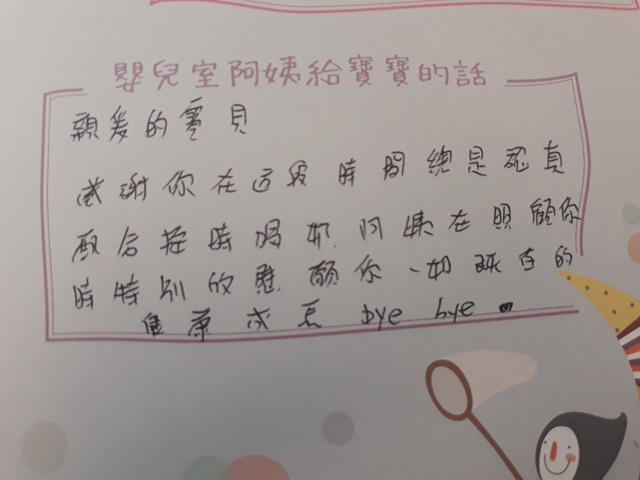 嬰兒室阿姨給寶寶的話
親愛的寶貝
感謝你在這段時間總是認真
配合按時喝奶.阿姨在照顧你
時特別的應.願你一如既存的
健康成長 bye bye